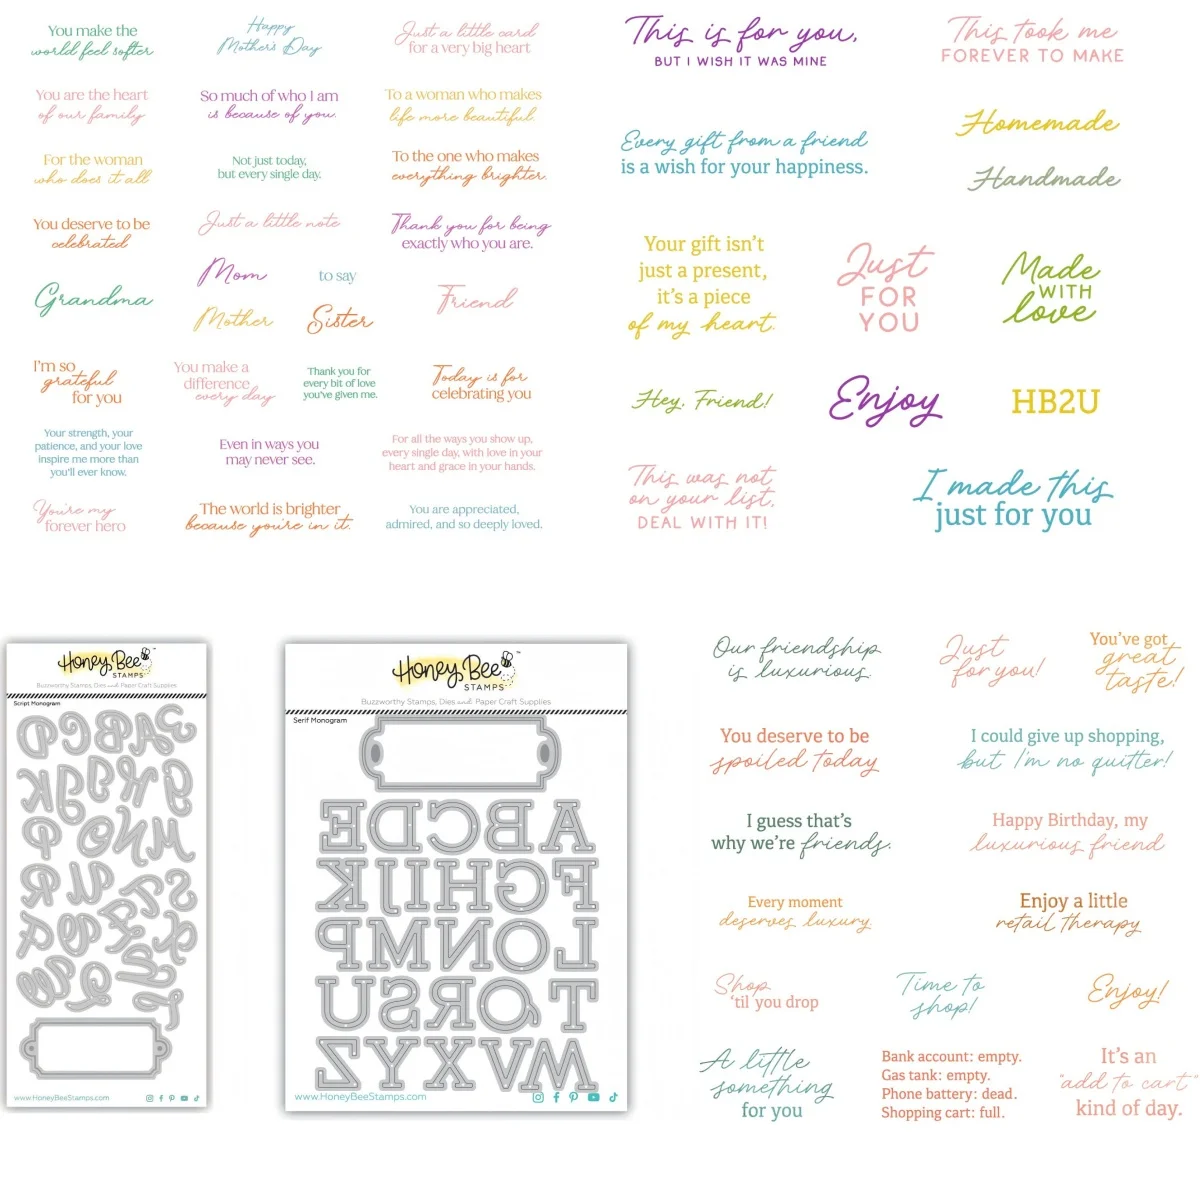 You make the
world feel softer
Happy
Mother's Day
Just a little card
for a very big heart
You are the heart
of our family
So much of who I am
is because of you.
To a woman who makes
life more beautiful.
For the woman
who does it all
Not just today,
but every single day.
To the one who makes
everything brighter.
You deserve to be
celebrated
Just a little note
Thank you for being
exactly who you are.
Grandma
Mom
to say
Mother
Sister
Friend
I'm so
grateful
for you
You make a
difference
every day
Thank you for
every bit of love
you've given me.
Today is for
celebrating you
Your strength, your
patience, and your love
inspire me more than
you'll ever know.
Even in ways you
may never see.
For all the ways you show up,
every single day, with love in your
heart and grace in your hands.
You're my
forever hero
The world is brighter
because you're in it.
You are appreciated,
admired, and so deeply loved.
This is for you,
BUT I WISH IT WAS MINE
This took me
FOREVER TO MAKE
Every gift from a friend
is a wish for your happiness.
Homemade
Handmade
Your gift isn't
just a present,
it's a piece
of my heart.
Just
FOR
YOU
Made
WITH
love
Hey, Friend!
Enjoy
HB2U
This was not
on your list,
DEAL WITH IT!
I made this
just for you
Honey Bee
STAMPS
Buzzworthy Stamps, Dies and Paper Craft Supplies
Script Monogram
www.HoneyBeeStamps.com
Honey Bee
STAMPS
Buzzworthy Stamps, Dies and Paper Craft Supplies
Serif Monogram
ABCDE
FGHIJK
LONMP
TQRSU
WVXYZ
www.HoneyBeeStamps.com
Our friendship
is luxurious.
Just
for you!
You've got
great
taste!
You deserve to be
spoiled today
I could give up shopping,
but I'm no quitter!
I guess that's
why we're friends.
Happy Birthday, my
luxurious friend
Every moment
deserves luxury.
Enjoy a little
retail therapy
Shop
'til you drop
Time to
shop!
Enjoy!
A little
something
for you
Bank account: empty.
Gas tank: empty.
Phone battery: dead.
Shopping cart: full.
It's an
"add to cart"
kind of day.